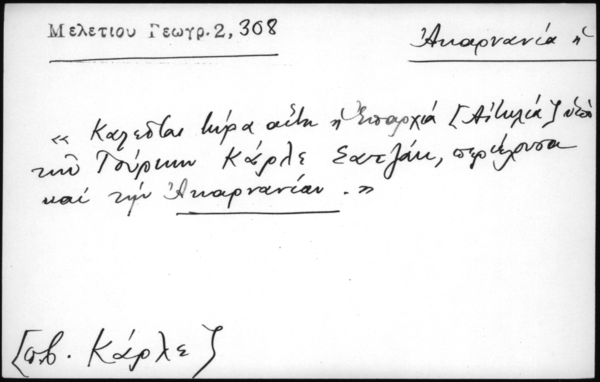 Μελετίου Γεωγρ. 2, 308
Ἀκαρνανία ἡ
« Καλεῖται τώρα αὕτη ἡ Ἐπαρχία [Αἰτωλία] ὑπὸ
τῶν Τούρκων Κάρλε Σαντζάκ, περιέχουσα
καὶ τὴν Ἀκαρνανίαν . »
[πβ. Κάρλε]